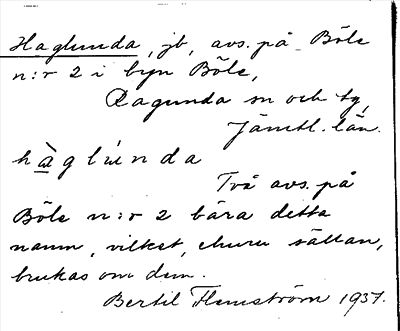 Haglunda, jb, avs. på Böle
n:r 2 i byn Böle,
Ragunda sn och tg,
Jämtl. län.
hàglúnda
Två avs. på
Böle n:r 2 bära detta
namn, vilket, ehuru sällan,
brukas om dem.
Bertil Flemström 1937.